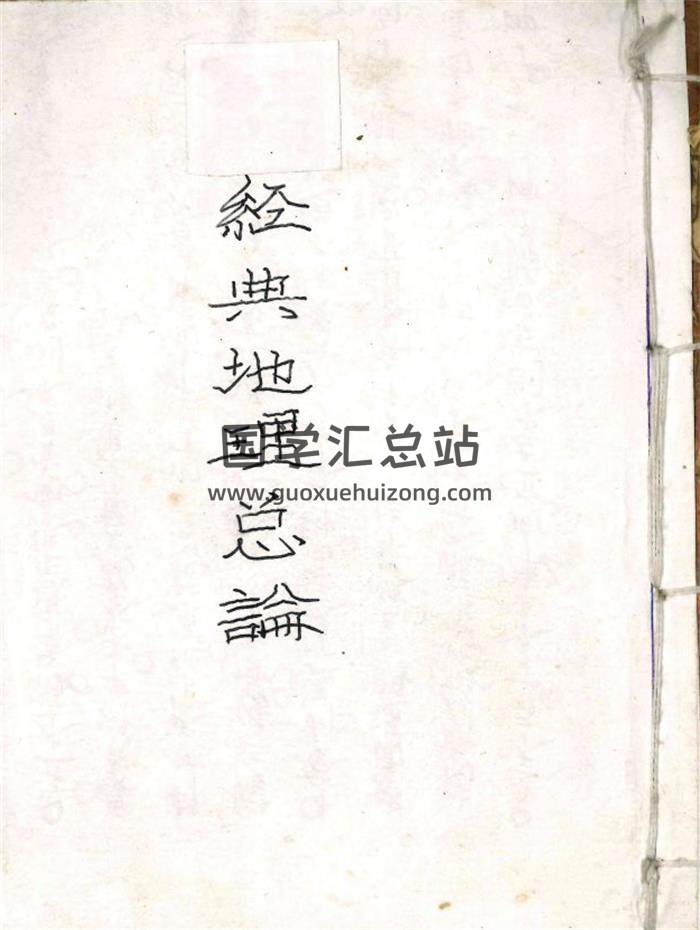 経典地理总論
国学汇总站
www.guoxuehuizong.com